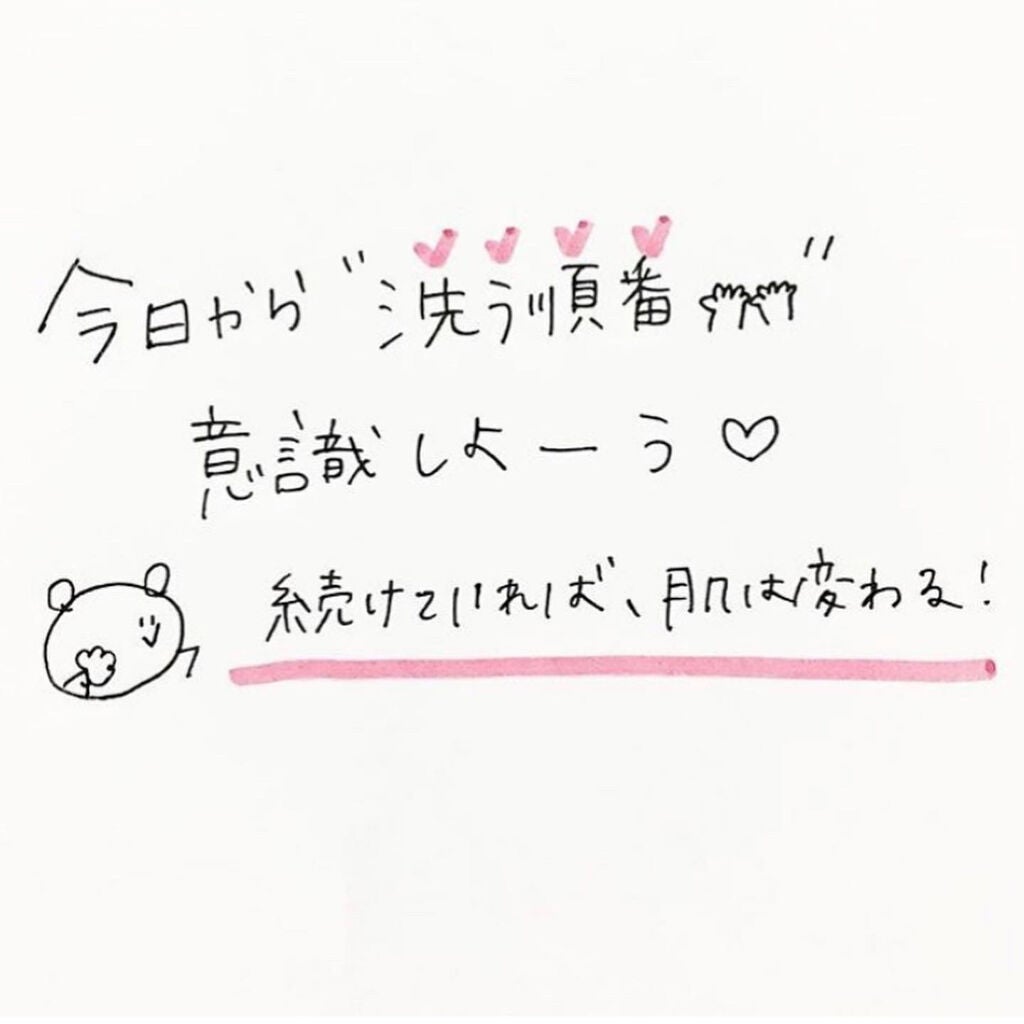 今日から"洗う順番"
意識しよーう♡
続けていれば、肌は変わる!